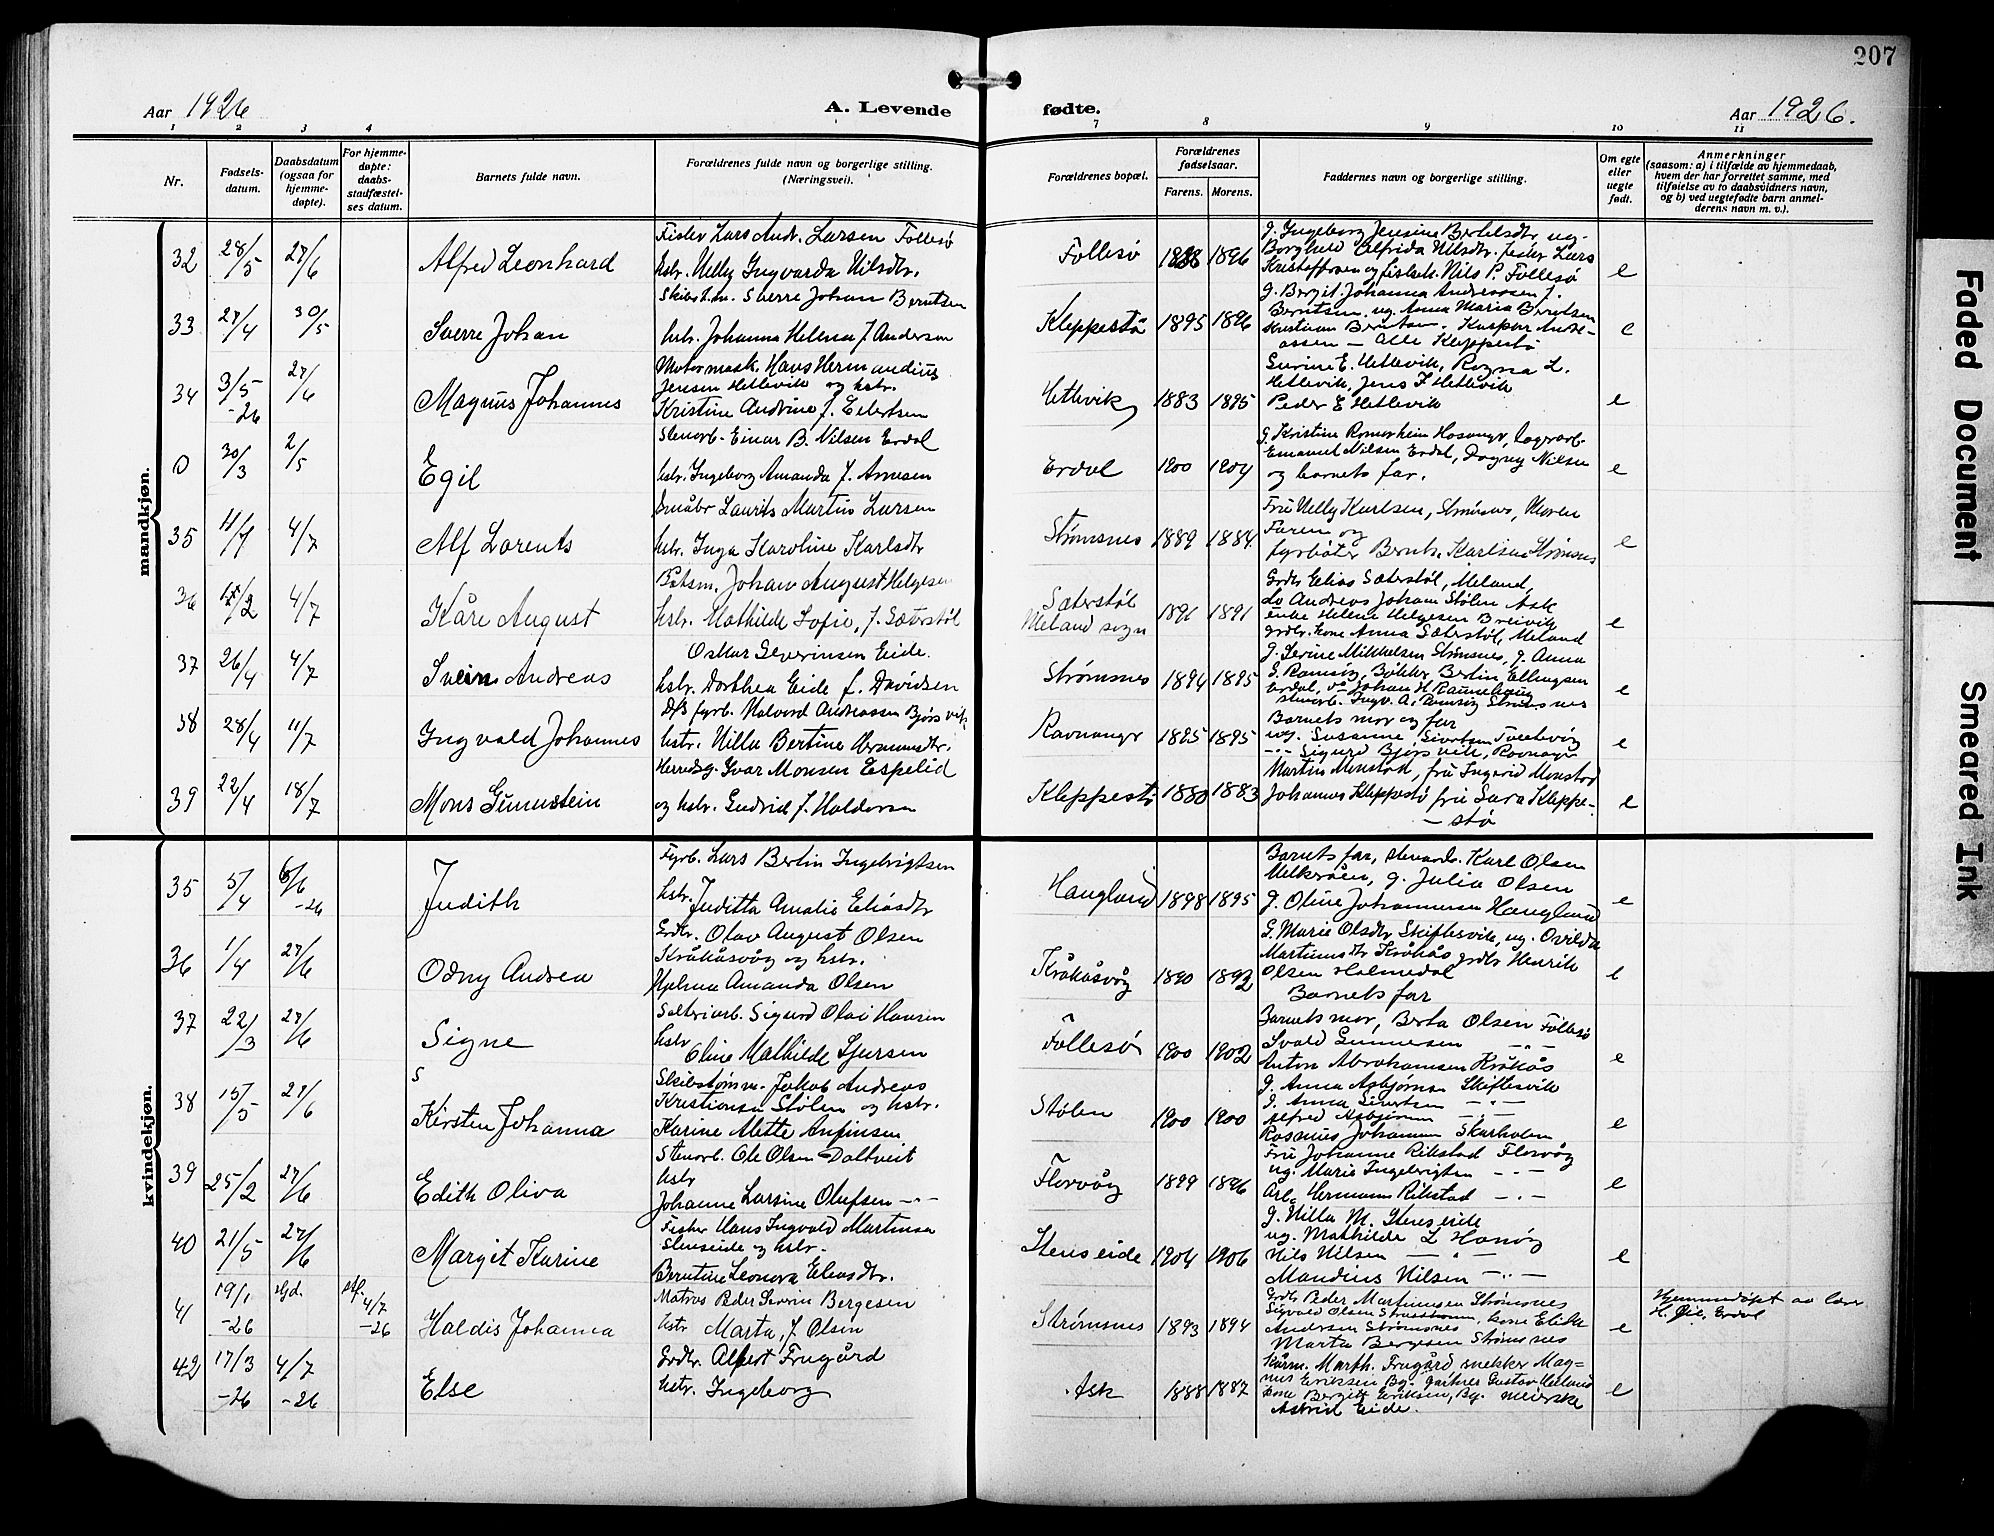 207
Aar 1926
A. Levende
fødte.
Aar 1926.
1 2 3 4
7 8 9 10 11
Nr.
Fødsels-
datum.
Daabsdatum
(ogsaa for
hjemme-
døpte).
For hjemme-
døpte:
daabs-
stadfæstel-
ses datum.
Barnets fulde navn.
Forældrenes fulde navn og borgerlige stilling.
(Næringsvei).
Forældrenes bopæl.
Forældrenes
fødselsaar.
Farens. Morens.
Faddernes navn og borgerlige stilling.
Om egte
eller
uegte
født.
Anmerkninger
(saasom: a) i tilfælde av hjemmedaab,
hvem der har forrettet samme, med
tilføielse av to daabsvidners navn,
og b) ved uegtefødte barn anmel-
derens navn m. v.).
mandkjøn.
32 28/5 27/6 Alfred Leonhard
Fisker Lars Andr. Larsen Follesø
hstr. Nelly Ingvarda Nilsdtr.
Follesø 1888 1896
g. Ingeborg Jensine Bertelsdtr ug.
Borghild Alfrida Nilsdtr. fisker Lars
Kristoffersen og fiskek. Nils P. Follesø
e
33 27/4 30/5 Sverre Johan
Skibst.m. Sverre Johan Berntsen
hstr. Johanna Helena f. Andersen
Kleppestø 1895 1896
g. Bergit Johanna Andreassen f.
Berntsen, ug. Anna Maria Berntsen
Kristian Berntsen. Kaspar Andre-
assen — Alle Kleppestø
e
34 3/5 -26 27/6 Magnus Johannes
Motormask. Hans Hermandius
Jensen Hetlevik og hstr.
Kristine Andrine f. Eilertsen
Hetlevik 1883 1895
Surine E. Hetlevik, Ragna L.
Hetlevik, Jens J Hetlevik
Peder E Hetlevik
e
0 30/3 2/5 Egil
Stenarb. Einar B. Nilsen Erdal
hstr. Ingeborg Amanda f. Arnesen
Erdal 1900 1904
g. Kristine Romarheim Hosanger, lagerarb.
Emanuel Nilsen Erdal, Dagny Nilsen
og barnets far.
e
35 4/7 Alf Lorents
Småbr Laurits Martin Larsen
hstr. Inga Karoline Karlsdtr
Strømsnes 1889 1884
Fru Nelly Karlsen, Strømsnes, Moren
Faren og
fyrbøter Bernh. Karlsen Strømsnes
e
36 4/7 Kåre August
Båtsm. Johan August Helgesen
hstr. Mathilde Sofie, f. Sæterstøl
Sæterstøl
Meland sogn
1891 1891
Grdbr Elias Sæterstøl, Meland,
do Andreas Johan Stølen Ask
enke Helene Helgesen Breivik
grdbr. kone Anna Sæterstøl, Meland
e
37 26/4 4/7 Svein Andreas
Oskar Severinsen Eide.
hstr. Dorthea Eide f. Davidsen
Strømsnes 1894 1895
g. Serine Mikkelsen Strømsnes, g. Anna
S. Ramsøy, Bøkker Berlin Ellingsen
Erdal,
e
38 28/4 11/7 Ingvald Johannes
D/S fyrb. Halvord Andreassen Bjørsvik
hstr. Nilla Bertine Hermansdtr.
Ravnanger 1895 1895
Barnets mor og far
ug. Susanne Sivertsen Tveitevåg
—"— Sigurd Bjørsvik, Ravnanger
e
39 22/4 18/7 Mons Gunnstein
Herredsg. Ivar Monsen Espelid
og hstr. Gudrid f. Haldorsen
Kleppestø 1880 1883
Martin Monstad, fru Ingerid Monstad
Johannes Kleppestø fru Sara Kleppe-
— stø
e
kvindekjøn.
35 5/4 6/6 -26 Judith
Fyrb. Lars Bertin Ingebrigtsen
hstr. Juditta Amalie Eliasdtr
Haugland 1898 1895
Barnets far, steward. Karl Olsen
g. Julia Olsen
g. Oline Johannesen Haugland
e
36 1/4 27/6 Odny Andrea
Grdbr. Olav August Olsen
Kråkåsvåg og hstr.
Hjelma Amanda Olsen
Kråkåsvåg 1890 1892
G. Marie Olsdtr Skiftesvik, ug. Ovilda
Martinusdtr Kråkås grdbr Henrik
Olsen Holmedal
Barnets far
e
37 22/3 27/6 Signe
Salteriarb. Sigurd Olai Hansen
hstr
Oline Mathilde Sjursen
Follesø 1900 1902
Barnets mor, Berta Olsen Follesø
Svald Gunnesen —"—
Anton Abrahamsen Kråkås
e
38 15/5 27/6 S
Kirsten Johanna
Skibstømm. Jakob Andreas
Kristiansen Stølen og hstr.
Karine Alette Anfinsen
Stølen 1900 1900
g. Anna Asbjørnsen Skiftesvik
g. Anna Sivertsen —"—
Alfred Asbjørnsen —"—
Rasmus Johannesen Skarholmen
e
39 25/2 27/6 Edith Oliva
Stenarb. Ole Olsen Daltveit
hstr
Johanne Larsine Olufsen —"—
Florvåg 1899 1896
Fru Johanne Rikstad Florvåg
ug. Marie Ingebrigtsen —"—
Arb. Hermann Rikstad —"—
e
40 21/5 27/6 Margit Karine
Fisker Hans Ingvald Martinsen
Stenseide og hstr.
Berntine Leonora Eliasdtr.
Stenseide 1904 1906
g. Nilla M. Stenseide
ug. Mathilde L Hanøy
Nils Nilsen —"—
Mandius Nilsen —"—
e
41 19/1 -26 Hjd. Stf. 4/7 -26 Haldis Johanna
Matros Peder Severin Bergesen
hstr Marta, f. Olsen
Strømsnes 1893 1894
Grdbr Peder Martinusen Strømsnes
Sigvald Olsen Strusshamn, kone Elida
Andersen Strømsnes
Marta Bergesen Strømsnes
e
Hjemmedøpt av lærer
H. Øie, Erdal
42 17/3 -26 4/7 -26 Else
Grdbr. Alfert Frugård
hstr. Ingeborg
Ask 1888 1887
Marth. Frugård snekker Mag-
nus Eriksen Bg. gartner Gustav Meland
kone Bergitt Eriksen, Bg. meierske
Astrid Eide.
e
Faded Document
Smeared Ink